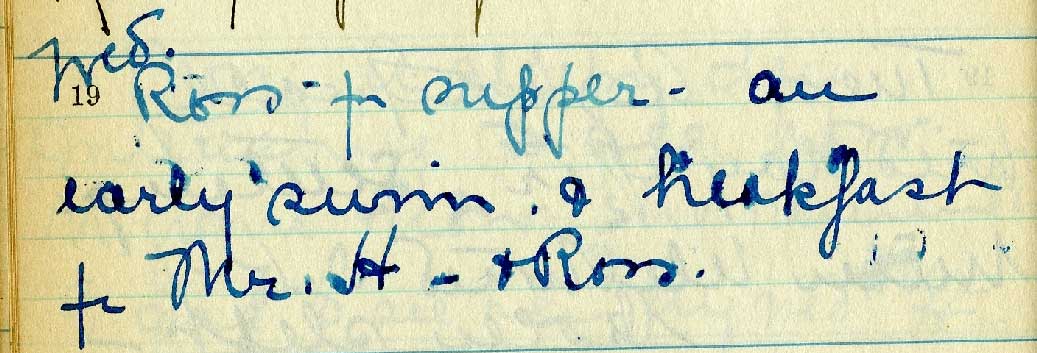 Wed.
19 Ross - for supper - an
early swim. & breakfast
for Mr. H - & Ross.